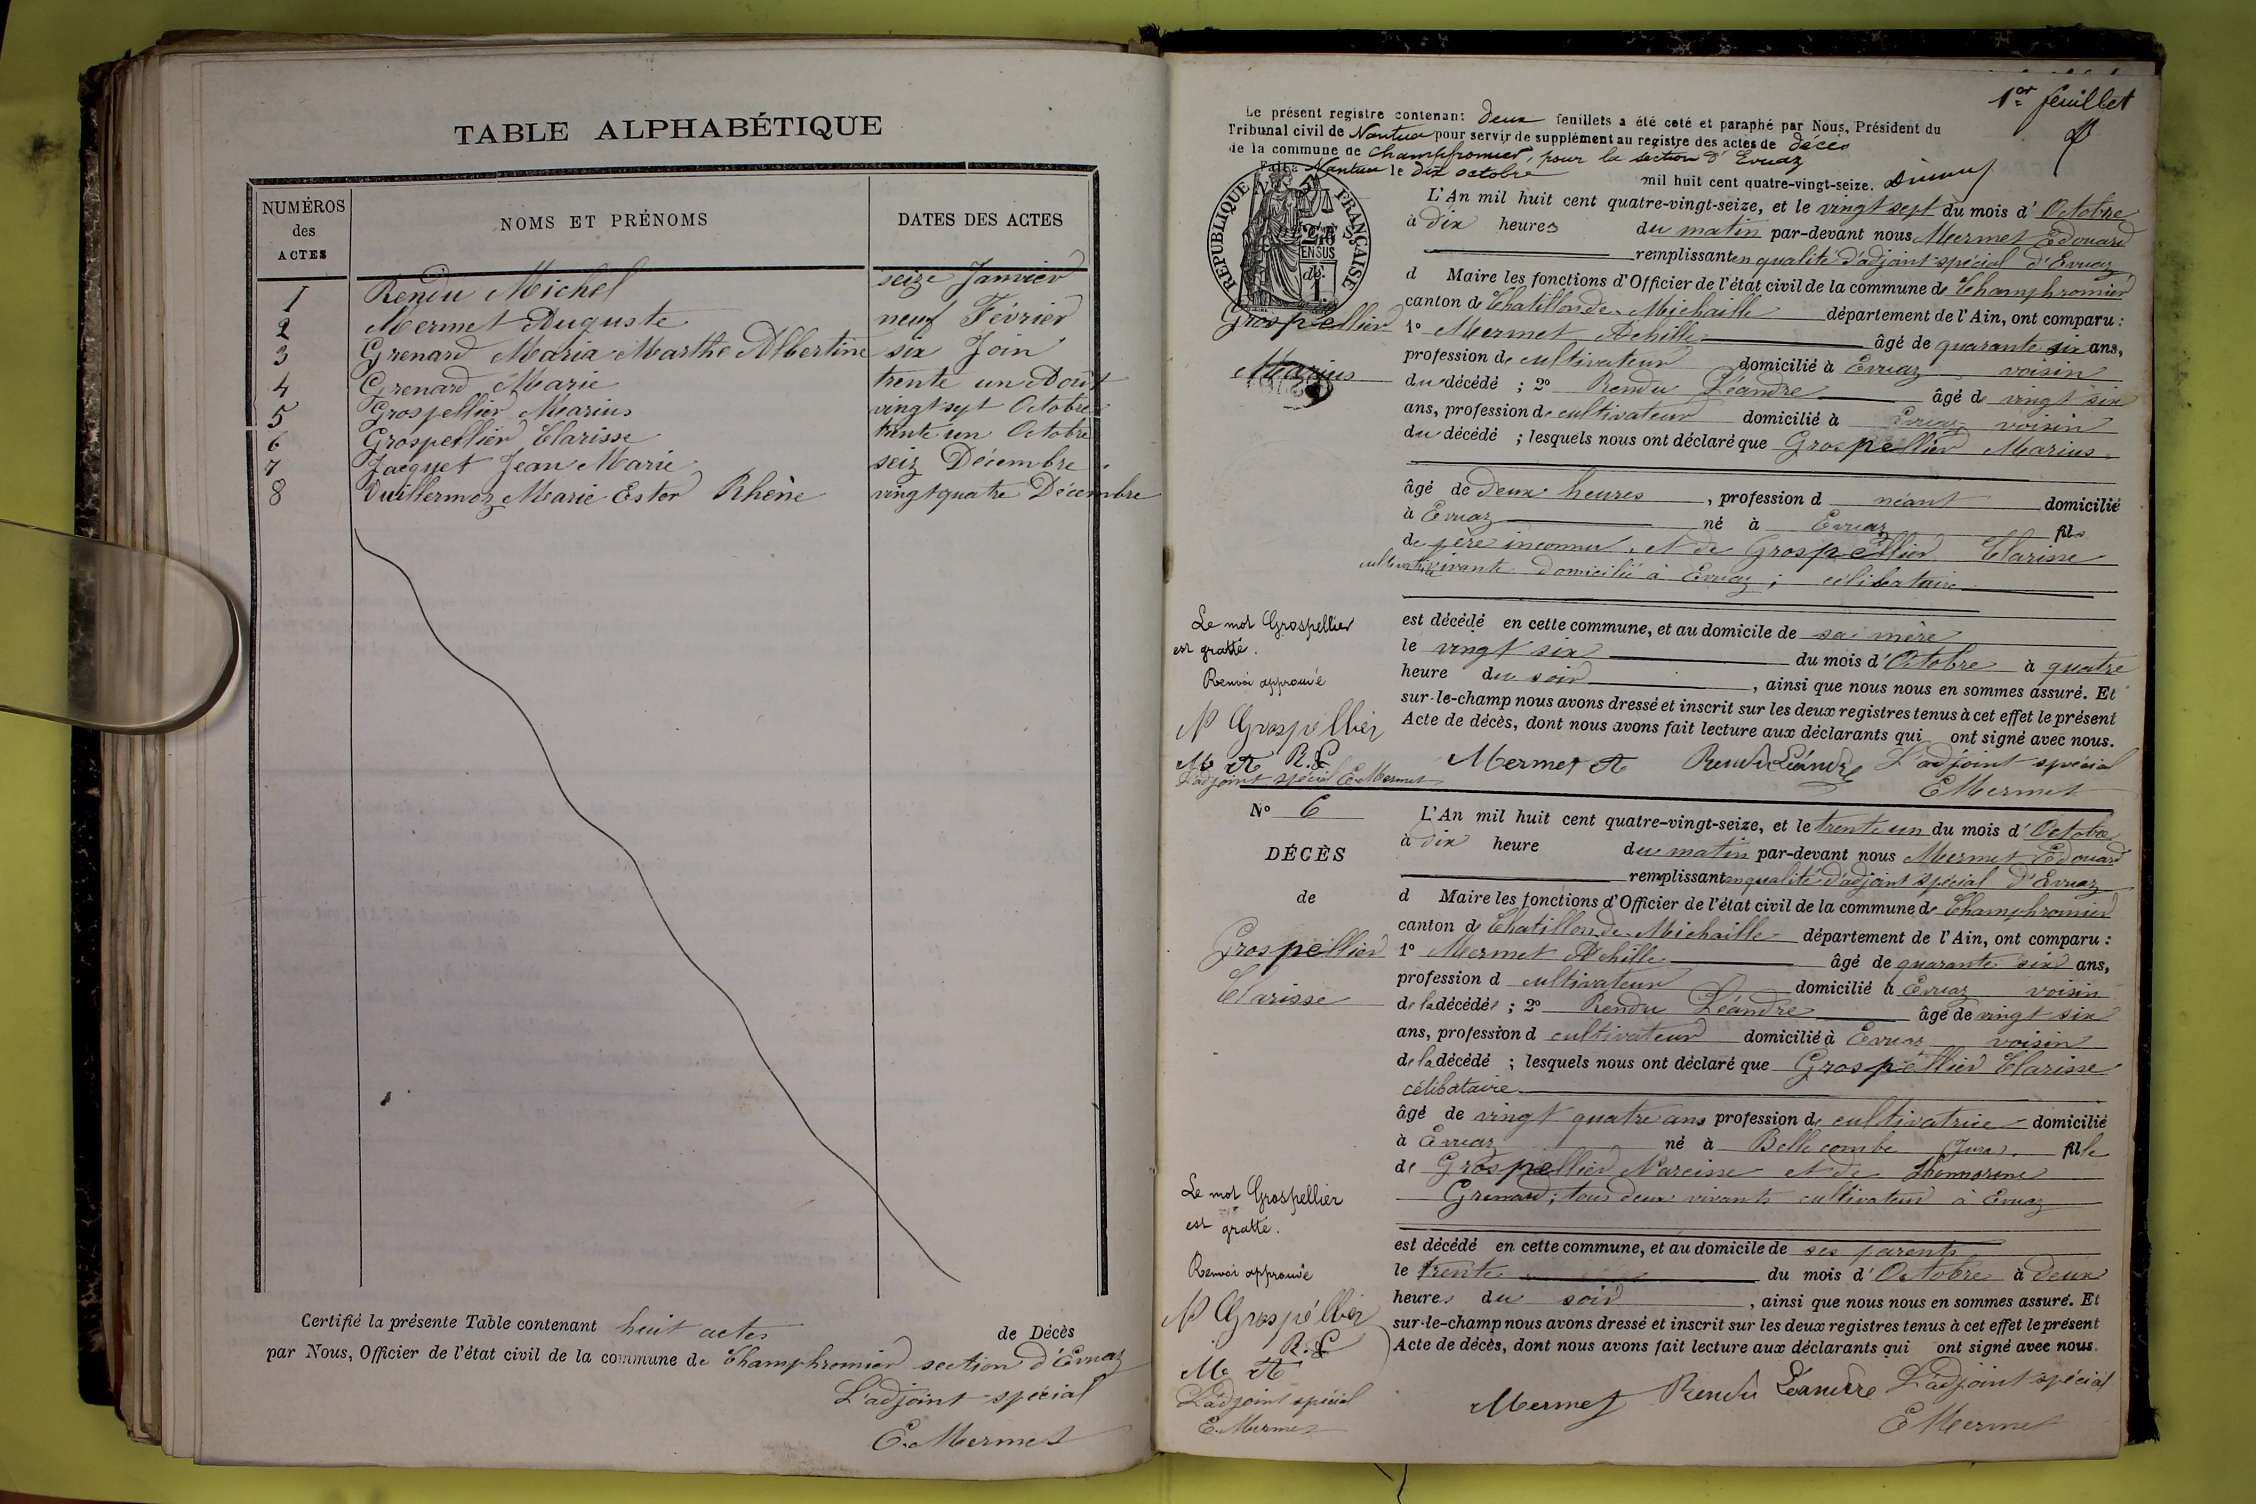 TABLE ALPHABÉTIQUE
NUMÉROS des ACTES
NOMS ET PRÉNOMS
DATES DES ACTES
1 Rendu Michel seize Janvier
2 Mermet Auguste neuf Février
3 Grenard Maria Marthe Albertine six Join
4 Grenard Marie trente un Août
5 Grospellier Marius vingt sept Octobre
6 Grospellier Clarisse trente un Octobre
7 Jacquet Jean Marie seiz Décembre
8 Vuillermoz Marie Ester Rhène vingt quatre Décembre
Certifié la présente Table contenant huit actes de Décès
par Nous, Officier de l'état civil de la commune de Champfromier section d'Evuaz
L'adjoint spécial
E. Mermet
1er feuillet
Le présent registre contenant deux feuillets a été coté et paraphé par Nous, Président du
Tribunal civil de Nantua pour servir de supplément au registre des actes de décès
de la commune de Champfromier, pour la section d'Evuaz
Fait à Nantua le dix octobre mil huit cent quatre-vingt-seize.
RÉPUBLIQUE FRANÇAISE
EN SUS
Grospellier
Marius
L'An mil huit cent quatre-vingt-seize, et le vingt sept du mois d'Octobre
à dix heures du matin par-devant nous Mermet Edouard
remplissant en qualité d'adjoint spécial d'Evuaz
d Maire les fonctions d'Officier de l'état civil de la commune de Champfromier
canton de Chatillon de Michaille département de l'Ain, ont comparu :
1º Mermet Achille âgé de quarante six ans,
profession de cultivateur domicilié à Evuaz voisin
du décédé ; 2º Rendu Léandre âgé de vingt six
ans, profession de cultivateur domicilié à Evuaz voisin
du décédé ; lesquels nous ont déclaré que Grospellier Marius
âgé de deux heures , profession d néant domicilié
à Evuaz né à Evuaz fils
de père inconnu, et de Grospellier Clarisse
cultivatrice vivante domicilié à Evuaz ; célibataire
est décédé en cette commune, et au domicile de sa mère
le vingt six du mois d'Octobre à quatre
heure du soir , ainsi que nous nous en sommes assuré. Et
sur-le-champ nous avons dressé et inscrit sur les deux registres tenus à cet effet le présent
Acte de décès, dont nous avons fait lecture aux déclarants qui ont signé avec nous.
Mermet A Rendu Léandre L'adjoint spécial
E Mermet
Le mot Grospellier
est gratté.
Renvoi approuvé
N Grospellier
M A R. L
L'adjoint spécial E. Mermet
Nº 6
DÉCÈS
de
Grospellier
Clarisse
L'An mil huit cent quatre-vingt-seize, et le trente un du mois d'Octobre
à dix heure du matin par-devant nous Mermet Edouard
remplissant en qualité d'adjoint spécial d'Evuaz
d Maire les fonctions d'Officier de l'état civil de la commune de Champfromier
canton de Chatillon de Michaille département de l'Ain, ont comparu :
1º Mermet Achille âgé de quarante six ans,
profession d cultivateur domicilié à Evuaz voisin
de la décédée ; 2º Rendu Léandre âgé de vingt six
ans, profession d cultivateur domicilié à Evuaz voisin
de la décédé ; lesquels nous ont déclaré que Grospellier Clarisse
célibataire
âgé de vingt quatre ans profession de cultivatrice domicilié
à Evuaz né à Bellecombe Jura. fille
de Grospellier Narcisse et de
Grenard ; tous deux vivants cultivateur à Evuaz
est décédé en cette commune, et au domicile de ses parents
le trente du mois d'Octobre à deux
heures du soir , ainsi que nous nous en sommes assuré. Et
sur-le-champ nous avons dressé et inscrit sur les deux registres tenus à cet effet le présent
Acte de décès, dont nous avons fait lecture aux déclarants qui ont signé avec nous.
Mermet Rendu Léandre L'adjoint spécial
E Mermet
Le mot Grospellier
est gratté.
Renvoi approuvé
N Grospellier
R. L
M A
L'adjoint spécial
E. Mermet